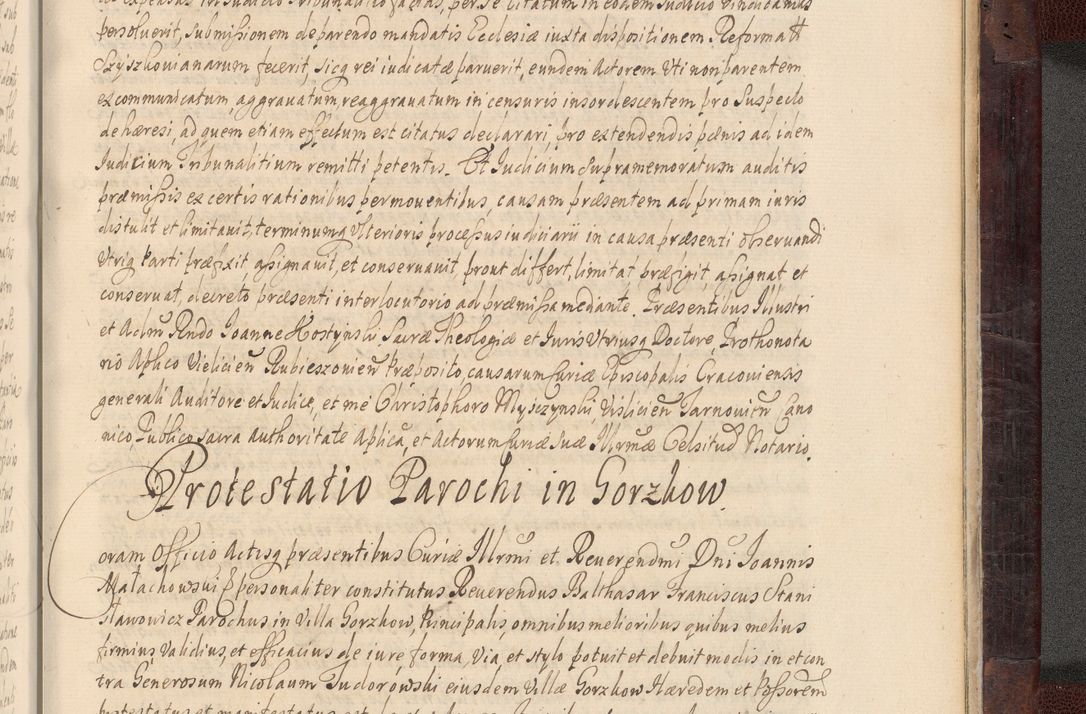 et expensas in Judicio Tribunalitio factas, per se citatum in eodem Judicio vindicamus
persoluerit, submissionem de parendo mandatis Ecclesiæ iuxta dispositionem Reformatt
Szyszkovianarum fecerit, sicq rei iudicatæ paruerit, eundem Actorem Vti non parentem
excommunicatum, aggrauatum, reaggrauatum in censuris insordescentem pro Suspecto
de hæresi, ad quem etiam effectum est citatus declarari, pro extendendis pænis ad idem
Judicium Tribunalitium remitti petentis. Et Judicium Supramemoratum auditis
præmissis ex certis rationibus permouentibus, causam præsentem ad primam iuris
distulit et limitauit, terminumq Vlterioris processus iudiciarii in causa præsenti obseruandi
Vtriq Parti præfixit, assignauit, et conseruauit, prout differt, limitat, præfigit, assignat et
conseruat, decreto præsenti interlocutorio ad præmissa mediante. Præsentibus Illustri
et Adm Rndo Joanne Hostynski Sacræ Theologiæ et Juris Vtriusq Doctore, Prothonota
rio Aplico Vielicien Rubieszovien Præposito, causarum Curiæ Episcopalis Cracoviensis
generali Auditore et Judice, et me Christophoro Mysczynski, Vislicien Tarnovien Cano
nico Publico sacra authoritate Aplica, et Actorum Curiæ Suæ Illrmæ Celsitud Notario.
Protestatio Parochi in Gorzkow.
oram Officio Actisq præsentibus Curiæ Illrmi et Reuerendmi Dni Joannis
Małachowski personaliter constitutus Reuerendus Balthasar Franciscus Stani
sławowicz Parochus in Villa Gorzkow, Principalis, omnibus melioribus quibus melius
firmius, validius, et efficacius de iure forma, via, et stylo potuit et debuit modis in et con
tra Generosum Nicolaum Sudorówski eiusdem Villæ Gorzkow Hæredem et Pssorem